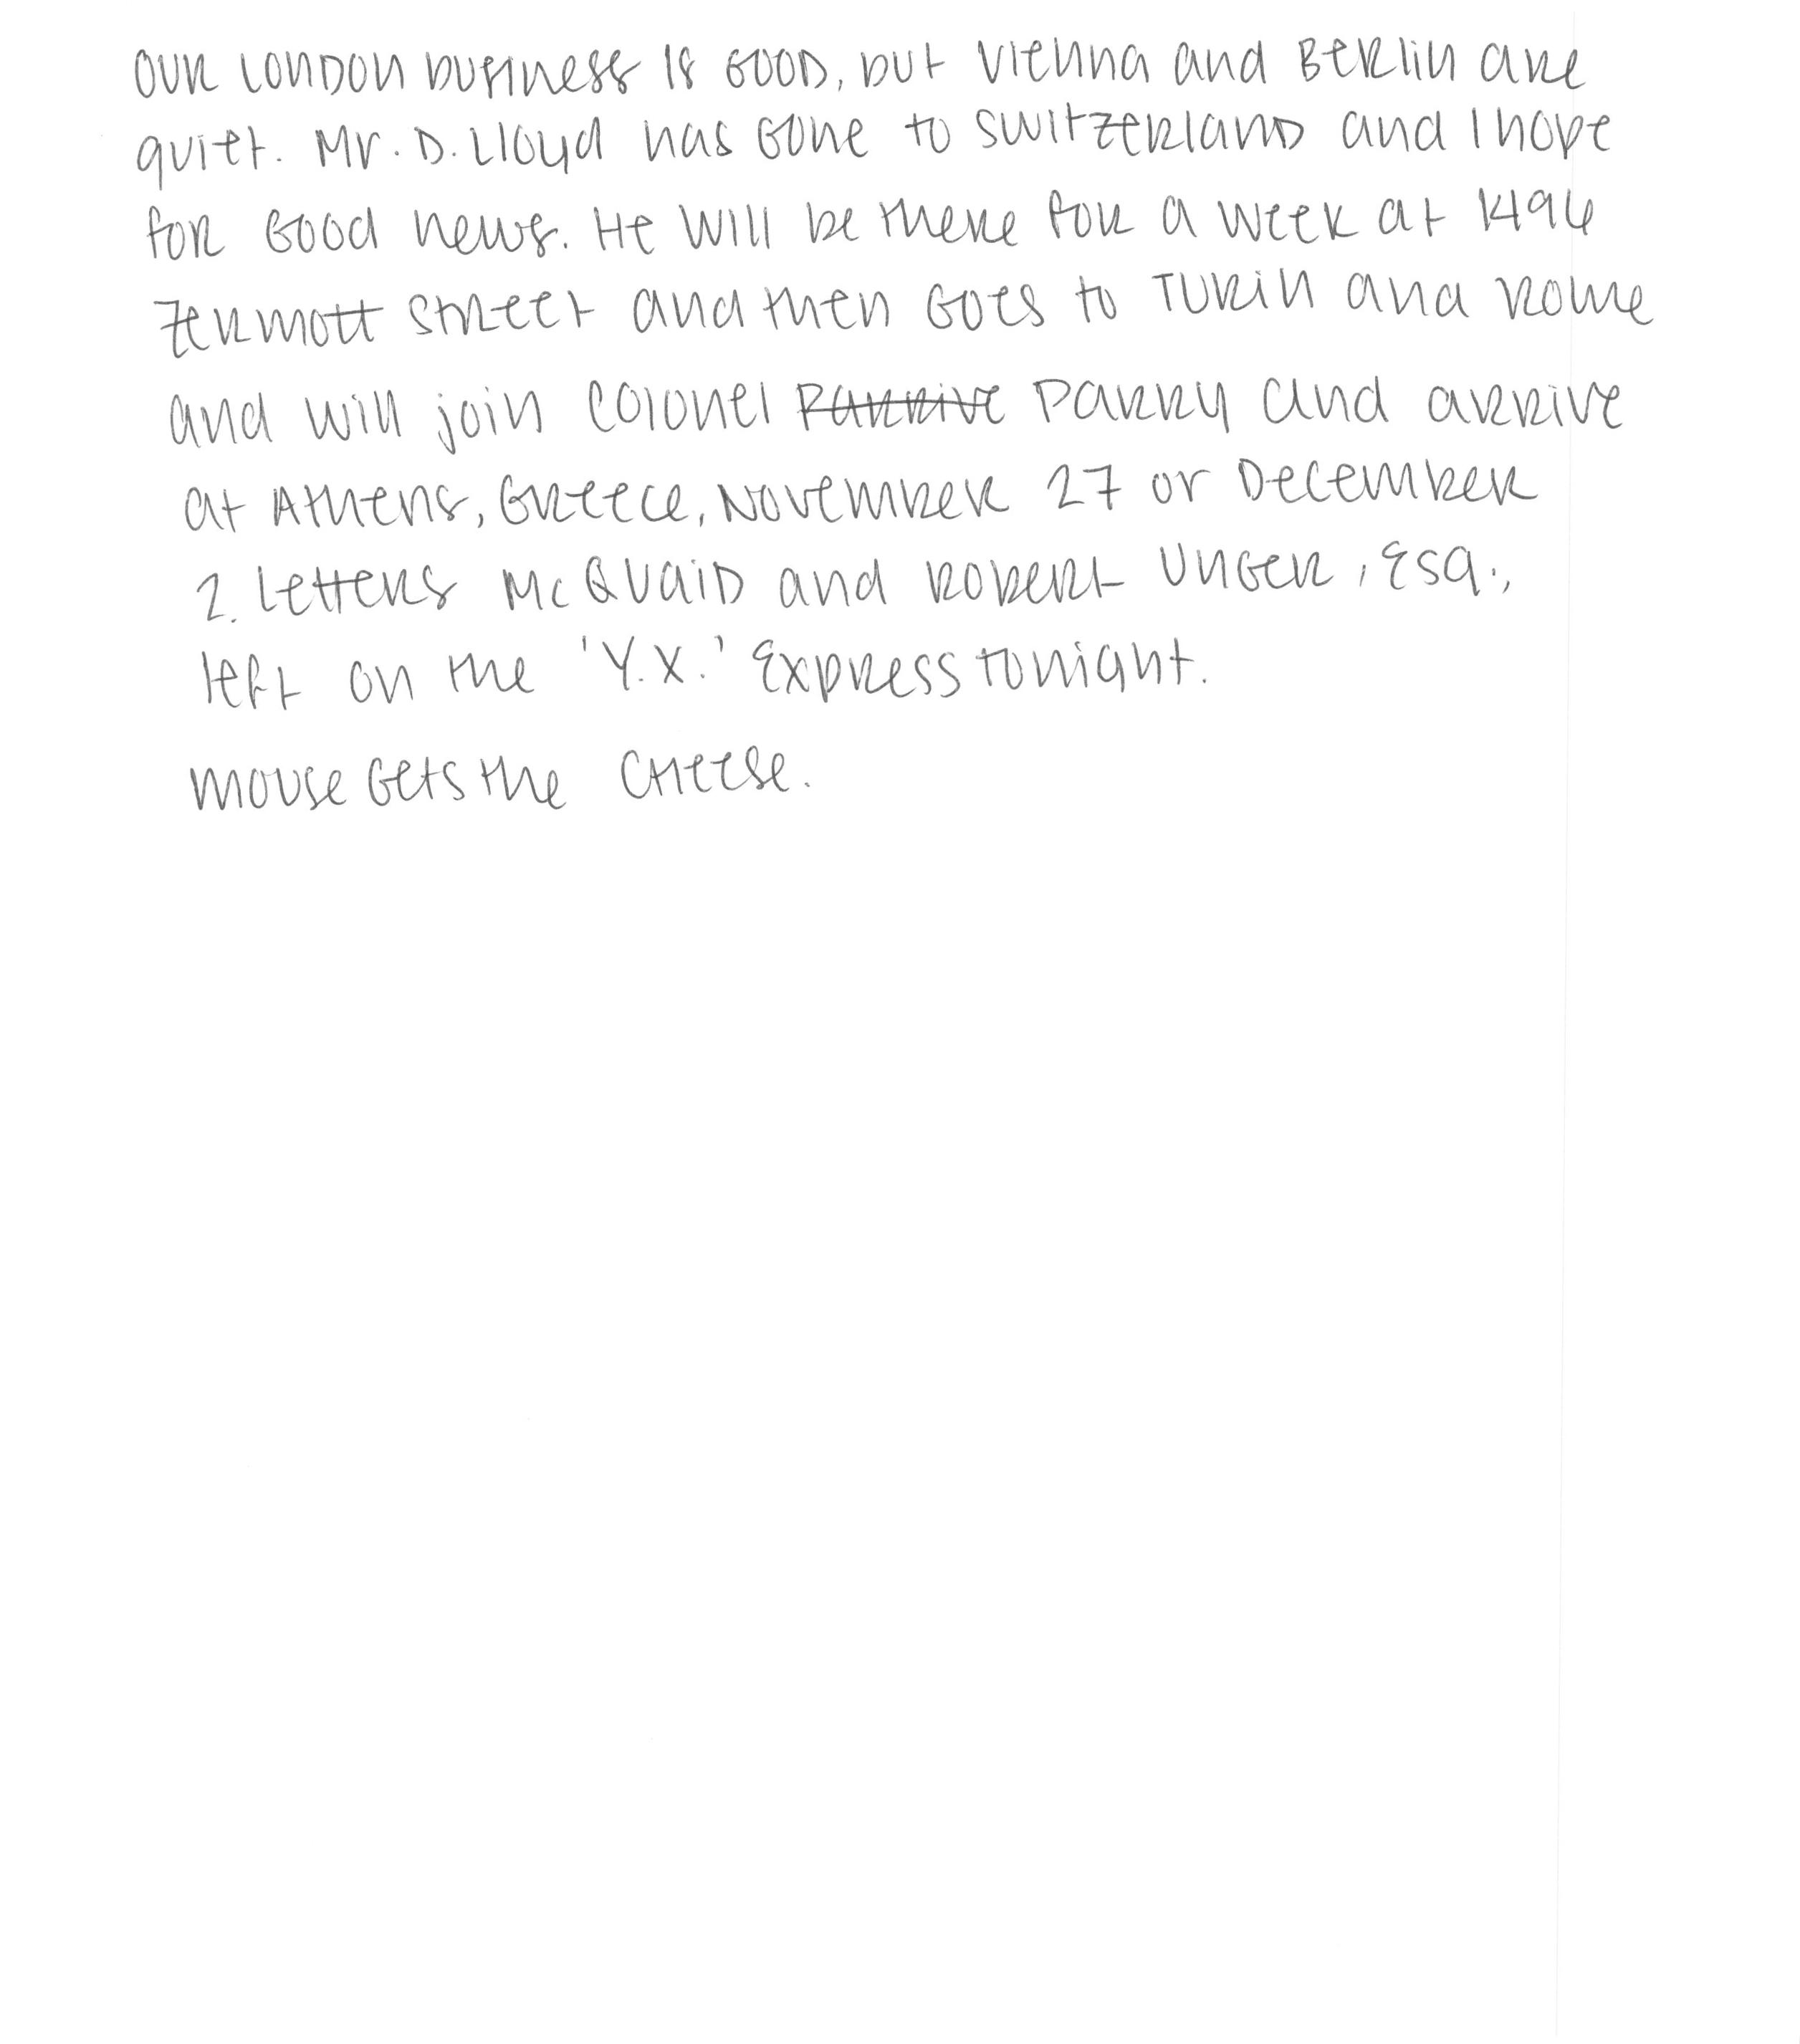 Our London business is good, but Vienna and Berlin are
quiet. Mr. D. Lloyd has gone to Switzerland and I hope
for good news. He will be there for a week at 1496
Zermott Street and then goes to Turin and Rome
and will join Colonel Parrive Parry and arrive
at Athens, Greece, November 27 or December
2. Letters McQuaid and Robert Unger, Esq.,
left on the 'Y.X.' Express tonight.
mouse gets the cheese.